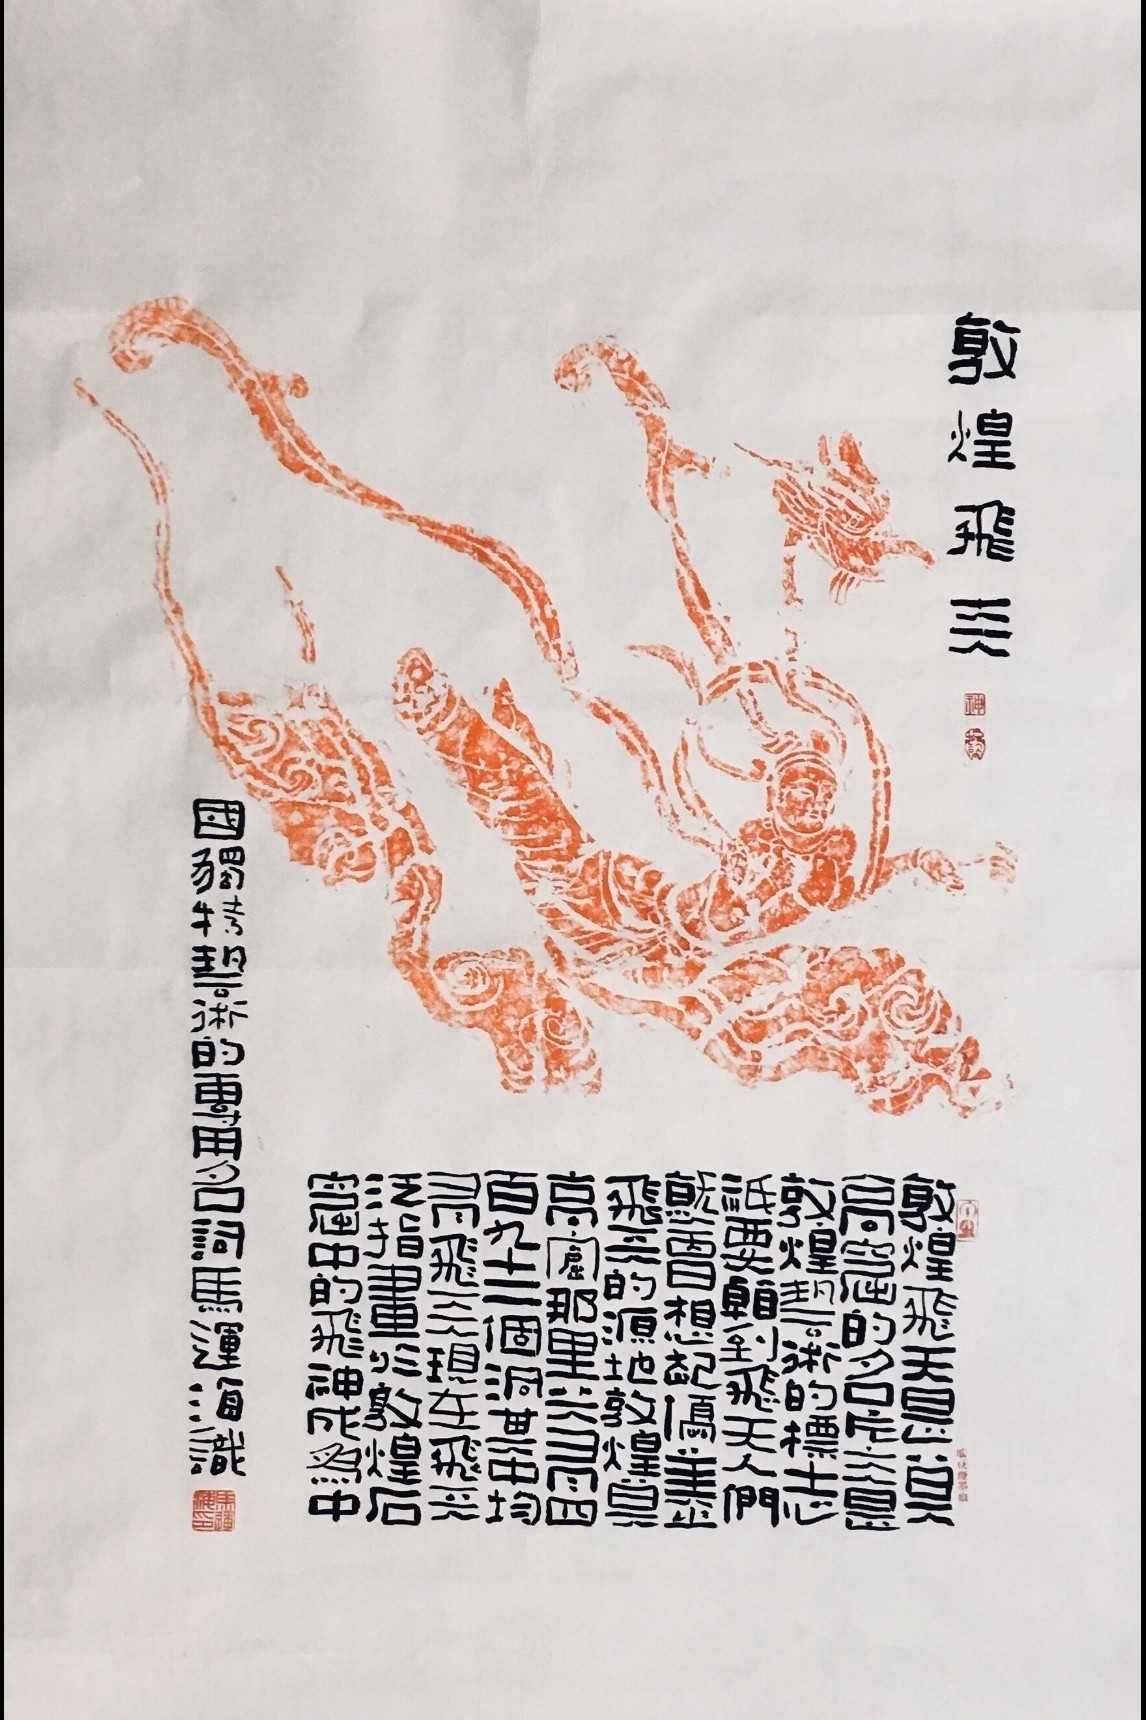 敦煌飛天
敦煌飛天是莫
高窟的名片又是
敦煌藝術的標志
祇要看到飛天人們
就會想起優美
飛天的源地敦煌莫
高窟那里共有四
百九十二個洞其中均
有飛天現在飛天
泛指畫於敦煌石
窟中的飛神成為中
國獨特藝術的專用名詞馬運海識